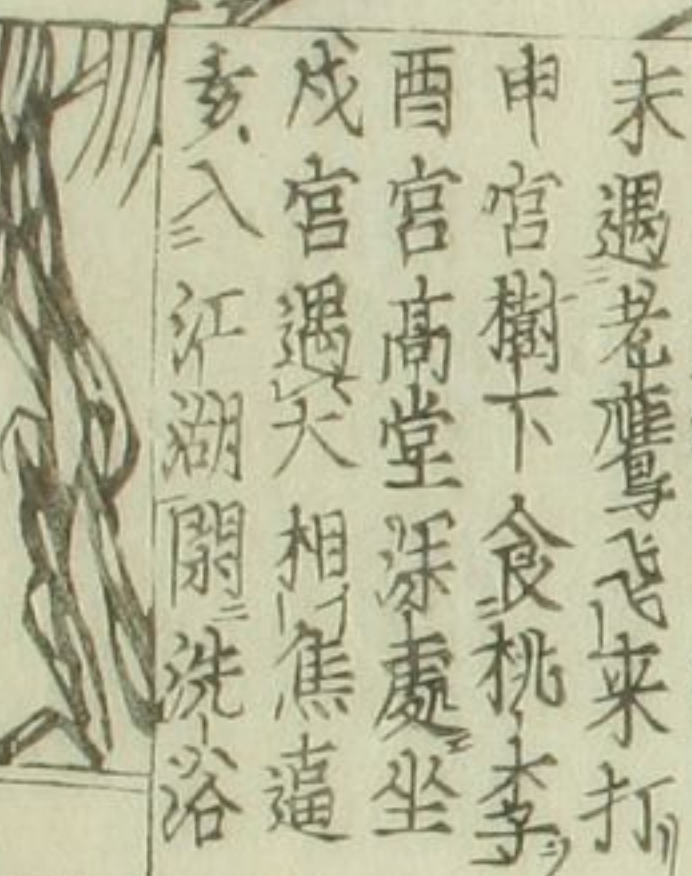 未遇老鷹飛来打
申宮樹下食桃李
酉宮高堂深處坐
戌宮遇犬相焦逼
亥入江湖閑洗浴